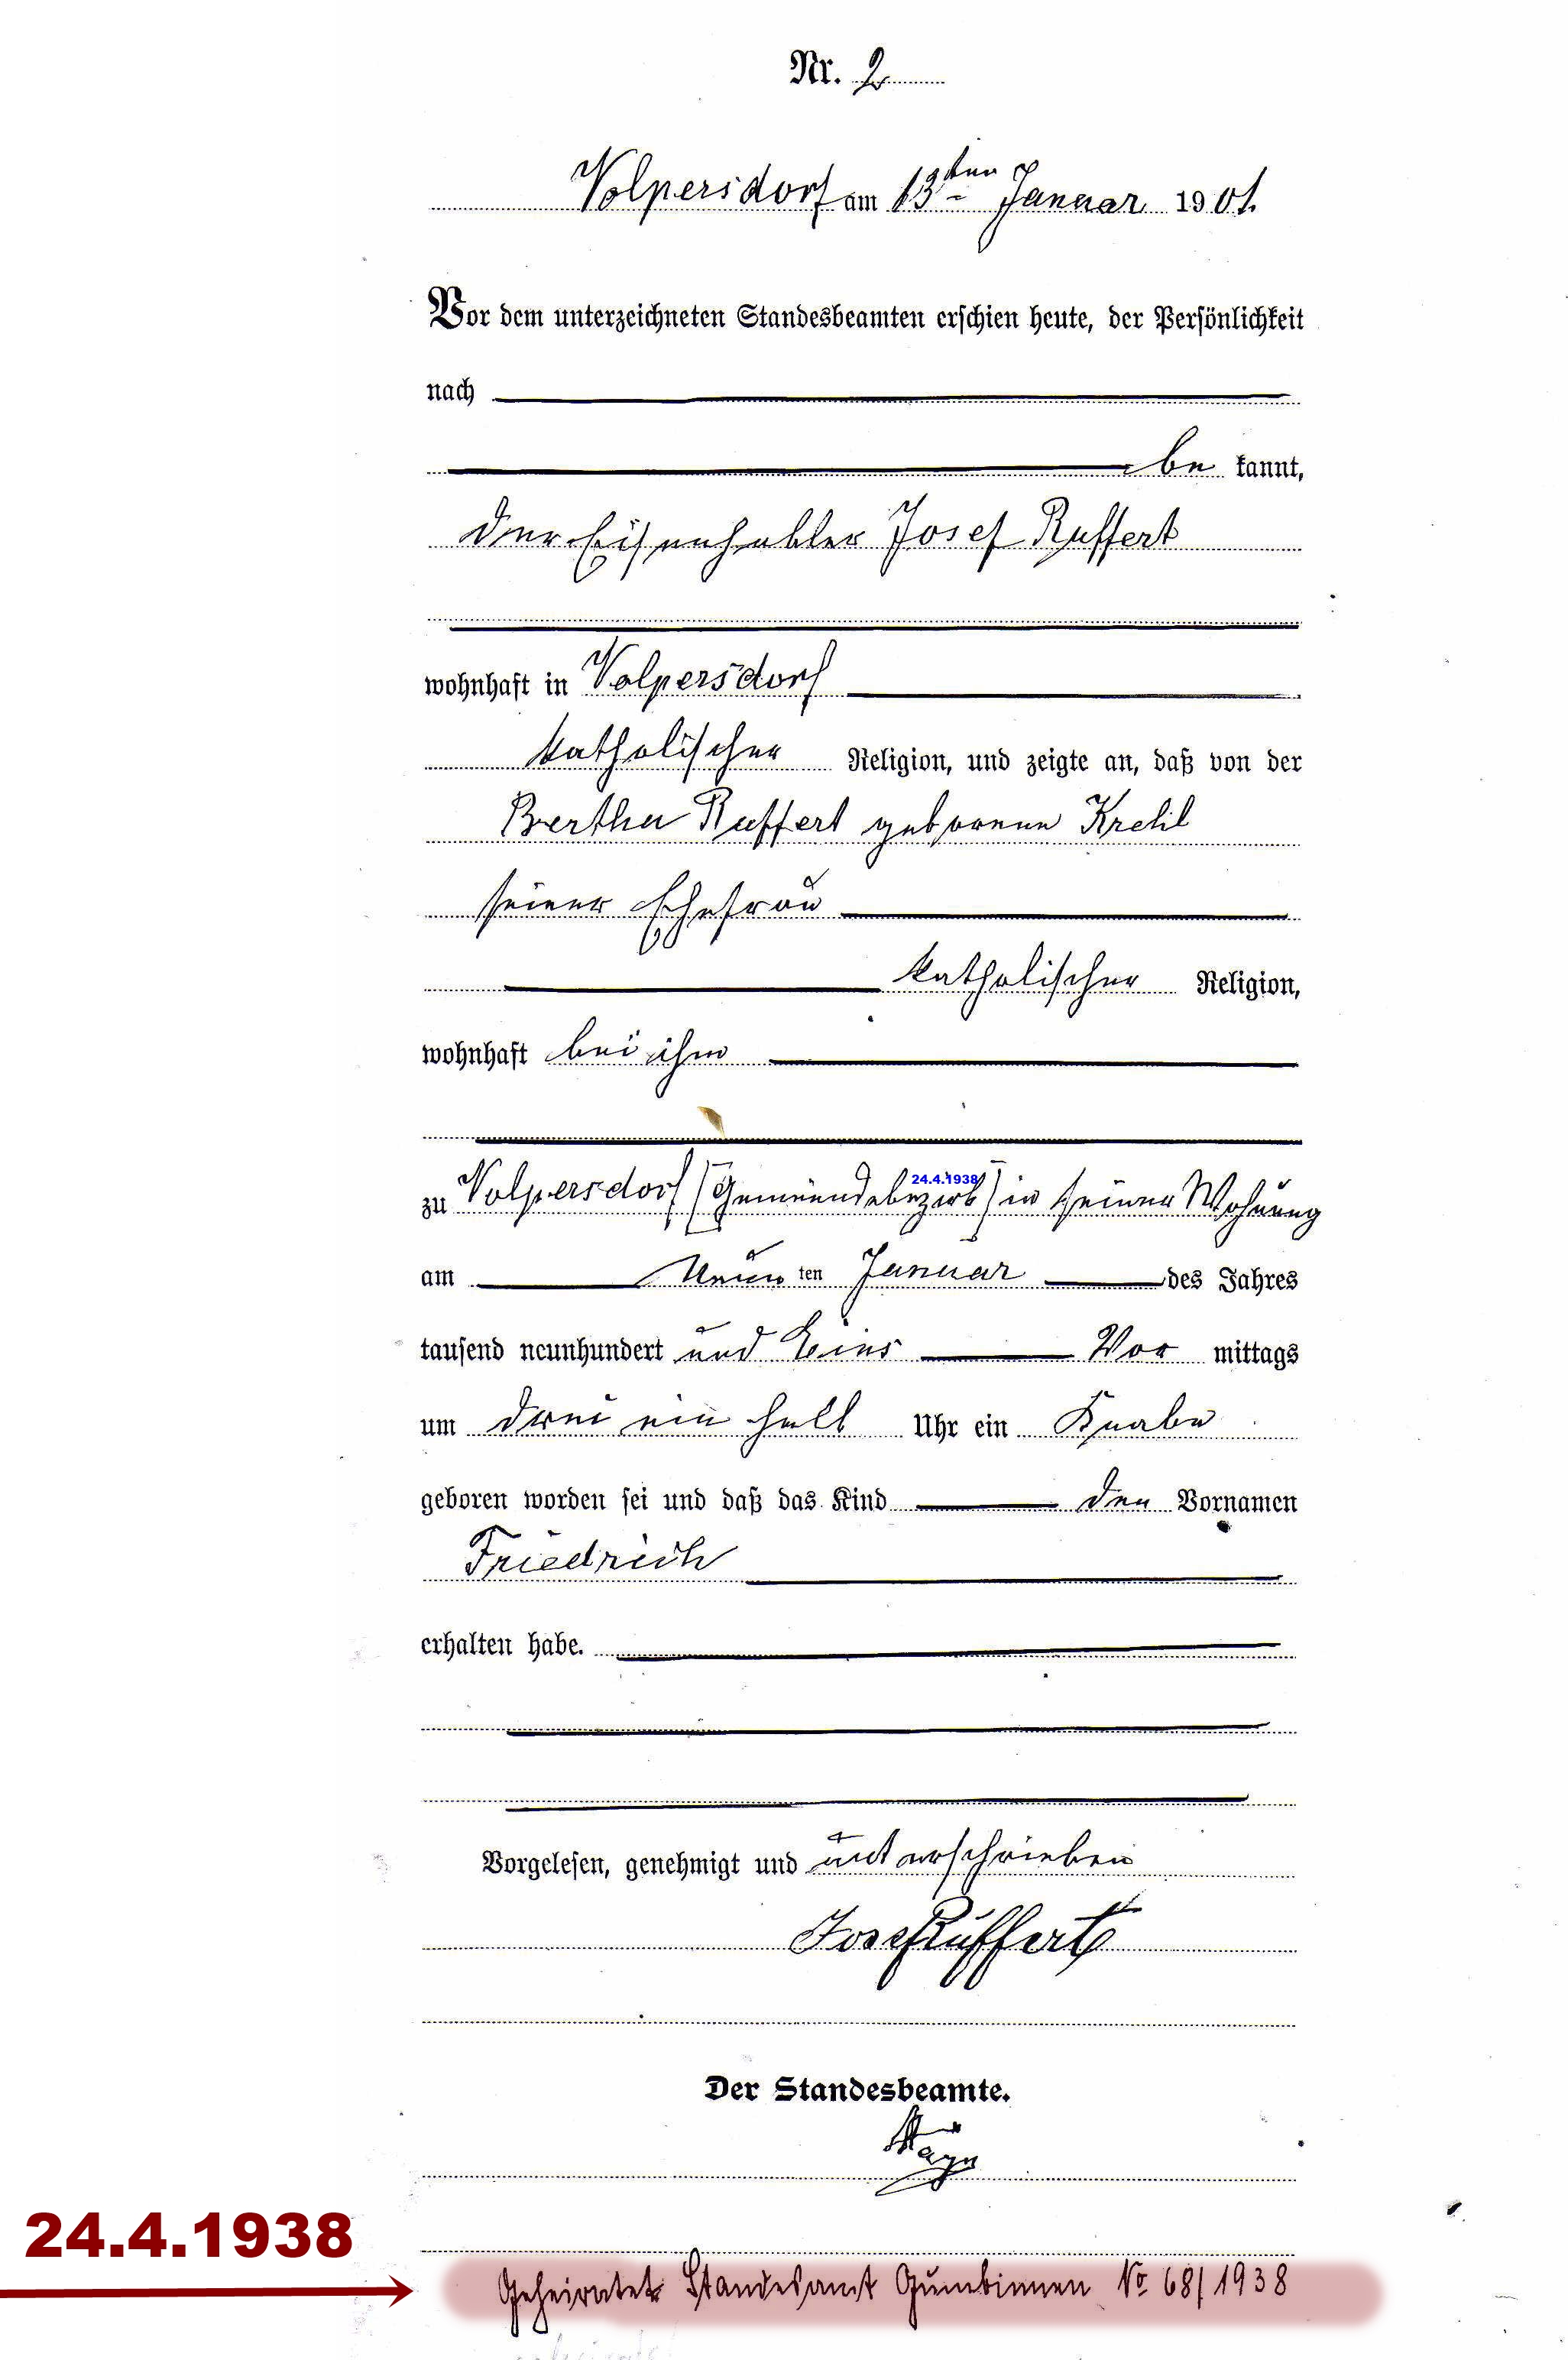 Nr. 2
Volpersdorf am 13ten Januar 1901.
Vor dem unterzeichneten Standesbeamten erschien heute, der Persönlichkeit
nach
be kannt,
der Eisenhobler Josef Ruffert
wohnhaft in Volpersdorf
katholischer Religion, und zeigte an, daß von der
Bertha Ruffert geborene
seiner Ehefrau
katholischer Religion,
wohnhaft bei ihm
24.4.1938
zu Volpersdorf [Gemeindebezirk] in seiner Wohnung
am Neun ten Januar des Jahres
tausend neunhundert und Eins Vor mittags
um drei ein halb Uhr ein Knabe
geboren worden sei und daß das Kind den Vornamen
Friedrich
erhalten habe.
Vorgelesen, genehmigt und unterschrieben
Josef Ruffert
Der Standesbeamte.
24.4.1938
Geheiratet Standesamt Gumbinnen No 68/1938